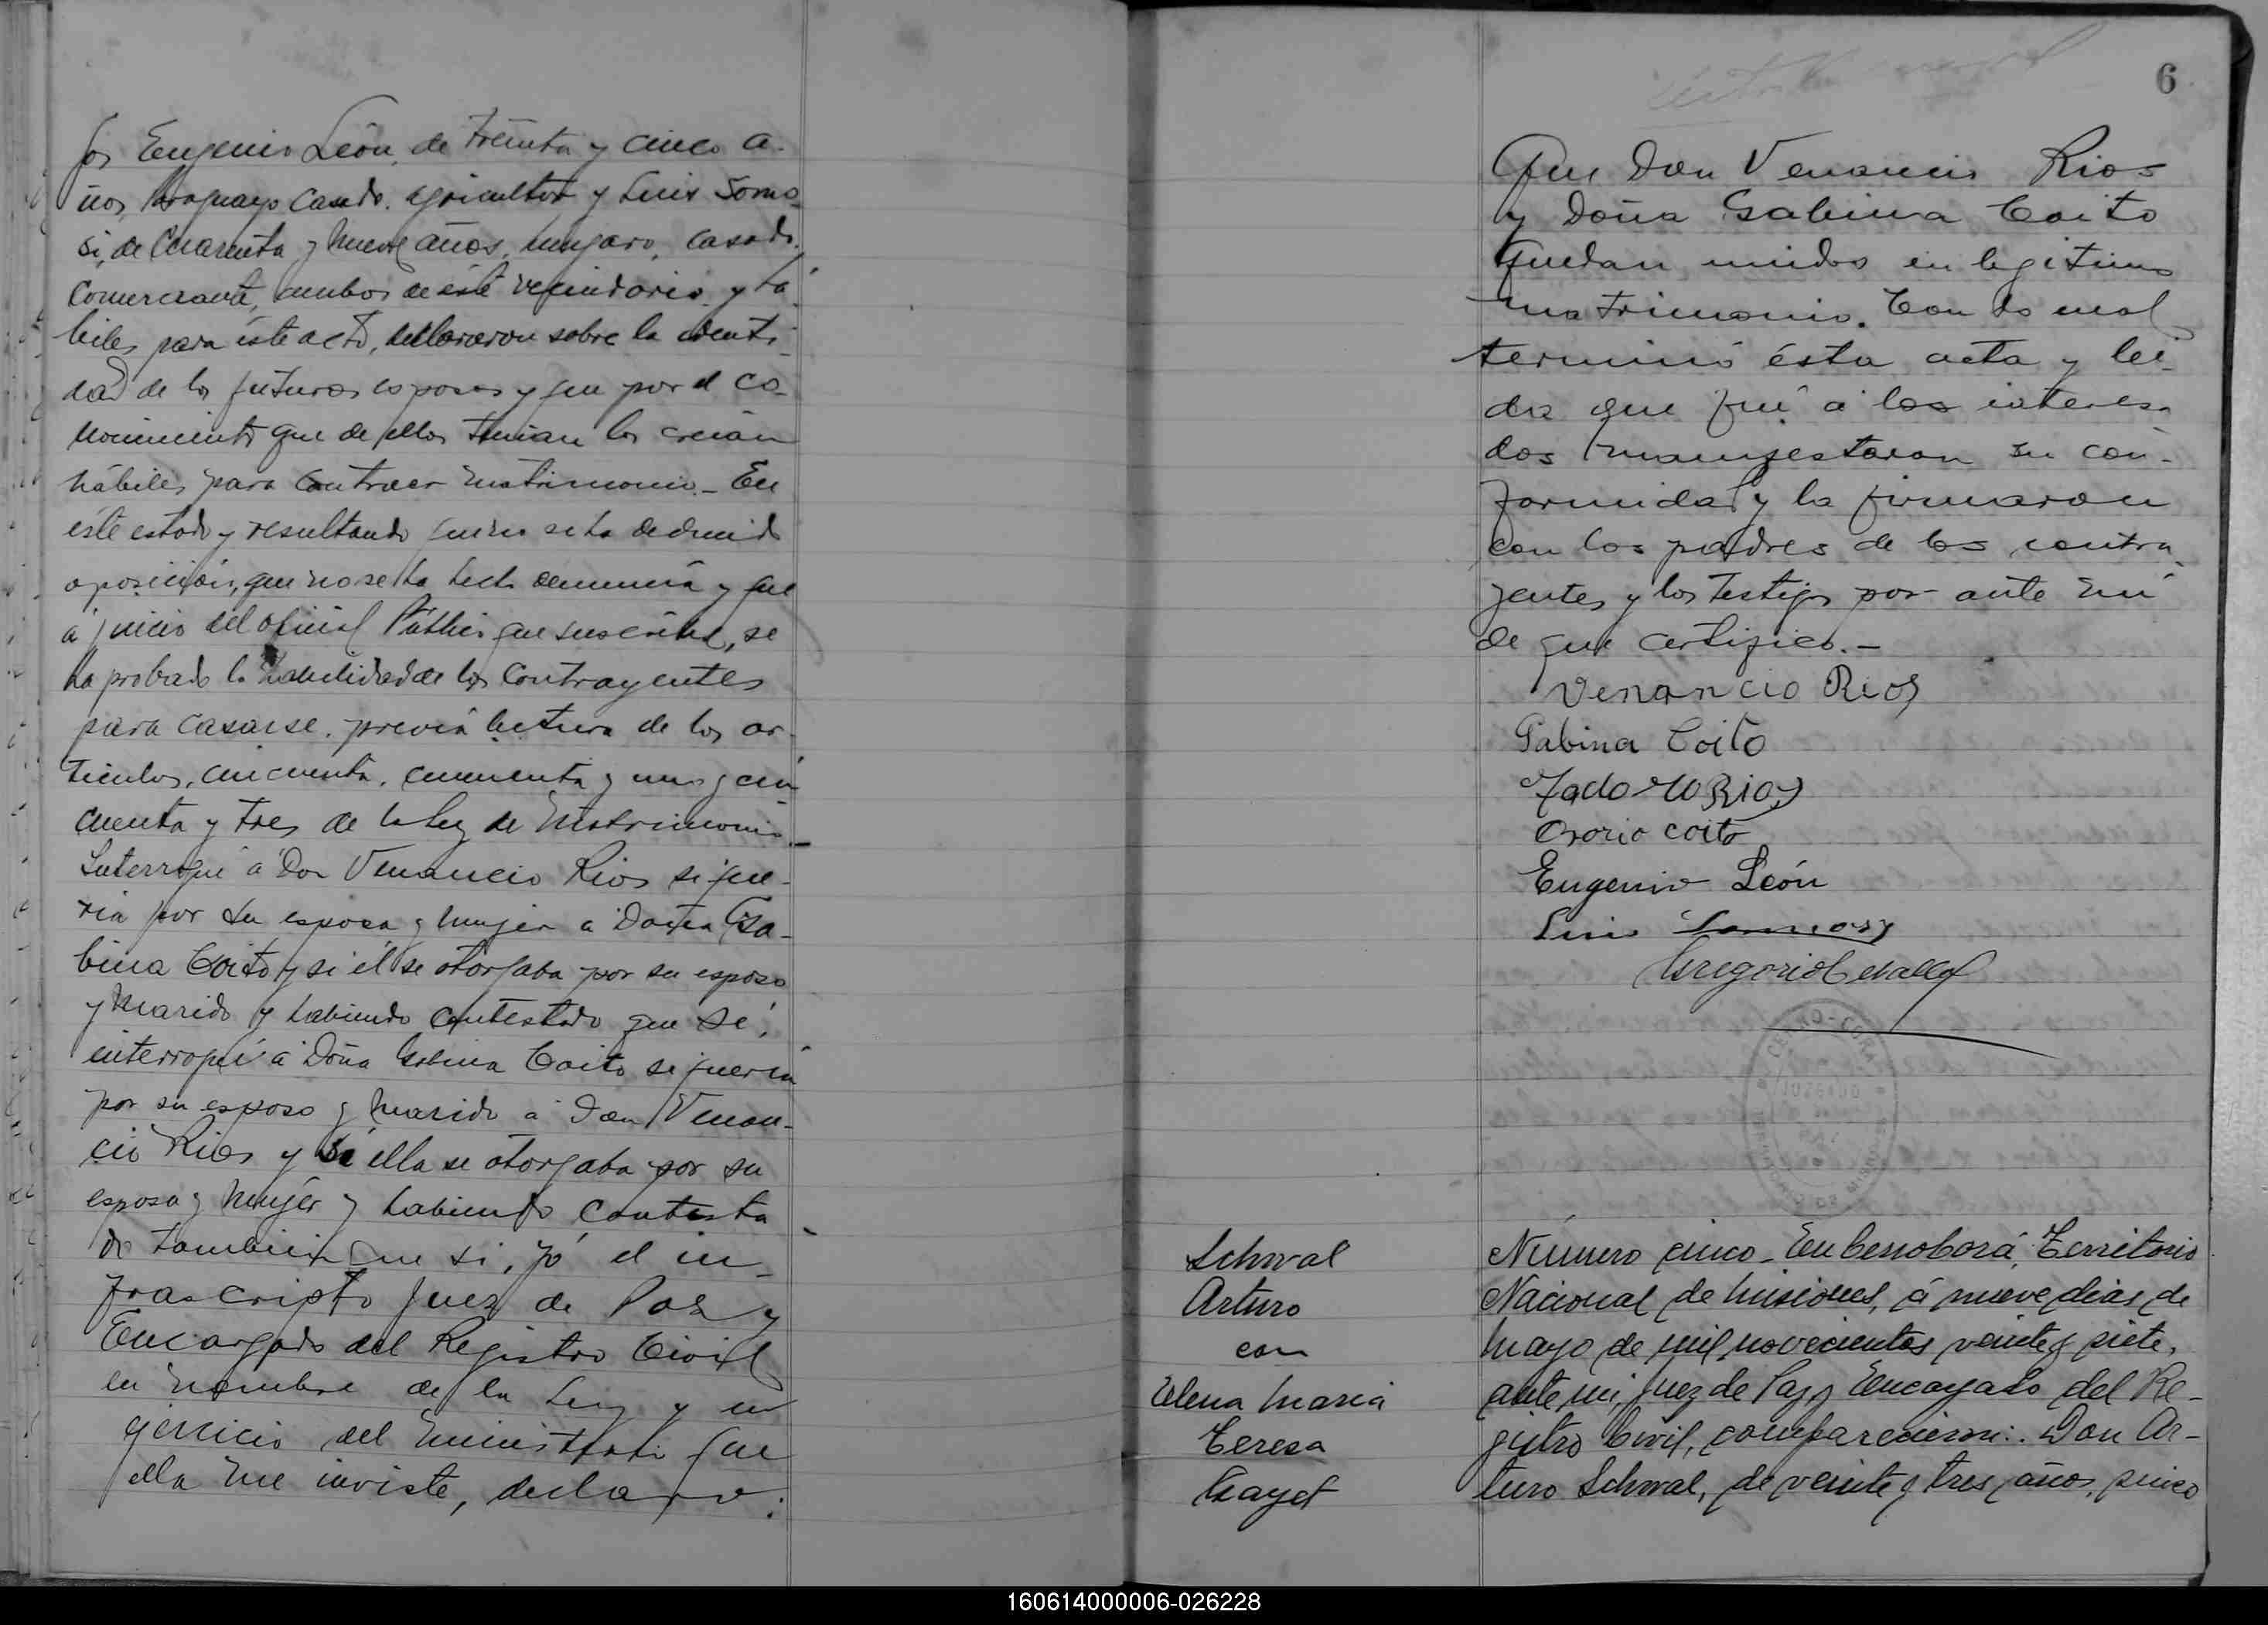 gos Eugenio León, de treinta y cinco a-
ños, Paraguayo Casado, agricultor y Luis Somo-
si, de Cuarenta y nueve años, hungaro, casado,
Comerciante, ambos de éste vecindario y há-
biles para éste acto, declararon sobre la identi-
dad de los futuros esposos y que por el co-
nocimiento que de ellos tenian los creian
hábiles para contraer matrimonio.- En
éste estado y resultando que no se ha deducido
oposición, que no se ha hecho denuncia y que
á juicio del oficial Público que suscribe, se
ha probado la habilidad de los Contrayentes
para casarse, previa lectura de los ar-
ticulos, cincuenta, cincuenta y uno y cin-
cuenta y tres de la Ley de Matrimonio.-
Interrogué á Don Venancio Rios si que-
ria por su esposa y mujer a Doña Ga-
bina Coito y si él se otorgaba por su esposo
y marido y habiendo contestado que sí,
interrogué á Doña Gabina Coito si queria
por su esposo y marido á Don Venan-
cio Rios y si ella se otorgaba por su
esposa y mujer y habiendo contesta
do tambien que si, yó el in-
frascripto Juez de Paz y
Encargado del Registro Civil
en nombre de la Ley y en
ejercicio del ministerio que
ella me inviste, declaro:
6
Que Don Venancio Rios
y Doña Gabina Coito
quedan unidos en legitimo
matrimonio. Con lo cual
terminó ésta acta y lei-
da que fué á los interesa
dos manifestaron su con-
formidad y la firmaron
con los padres de los contra-
yentes y los testigos por ante mí
de que certifico.-
Venancio Rios
Gabina Coito
Rios
Osorio coito
Eugenio León
Luis
Gregorio
CERRO-CORA
JUZGADO
DE
PAZ
TERRITORIO DE MISIONES
Schwal
Arturo
con
Elena Maria
Teresa
Número cinco - En Cerro Corá, Territorio
Nacional de Misiones, á nueve dias de
Mayo de mil novecientos veinte y siete,
ante mi, Juez de Paz y Encargado del Re-
gistro Civil, comparecieron: Don Ar-
turo Schwal, de veinte y tres años, suizo
160614000006-026228